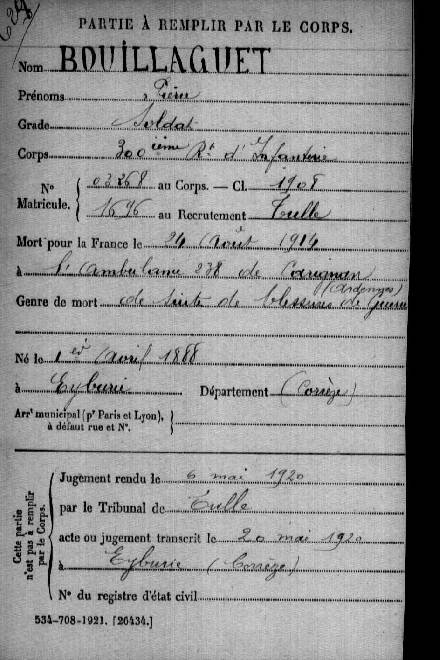 PARTIE À REMPLIR PAR LE CORPS.
Nom BOUILLAGUET
Prénoms Pierre
Grade Soldat
Corps 300ième Rt d'Infanterie
N° Matricule. { 03268 au Corps. — Cl. 1908
1696 au Recrutement Tulle
Mort pour la France le 24 Août 1914
à l'Ambulance 238 de Carignan
(Ardennes)
Genre de mort de suite de blessures de guerre
Né le 1er Avril 1888
à Eyburie Département (Corrèze)
Arrt municipal (pr Paris et Lyon),
à défaut rue et N°.
Cette partie n'est pas à remplir par le Corps.
Jugement rendu le 6 mai 1920
par le Tribunal de Tulle
acte ou jugement transcrit le 20 mai 1920
à Eyburie (Corrèze)
N° du registre d'état civil
534-708-1921. [26434.]